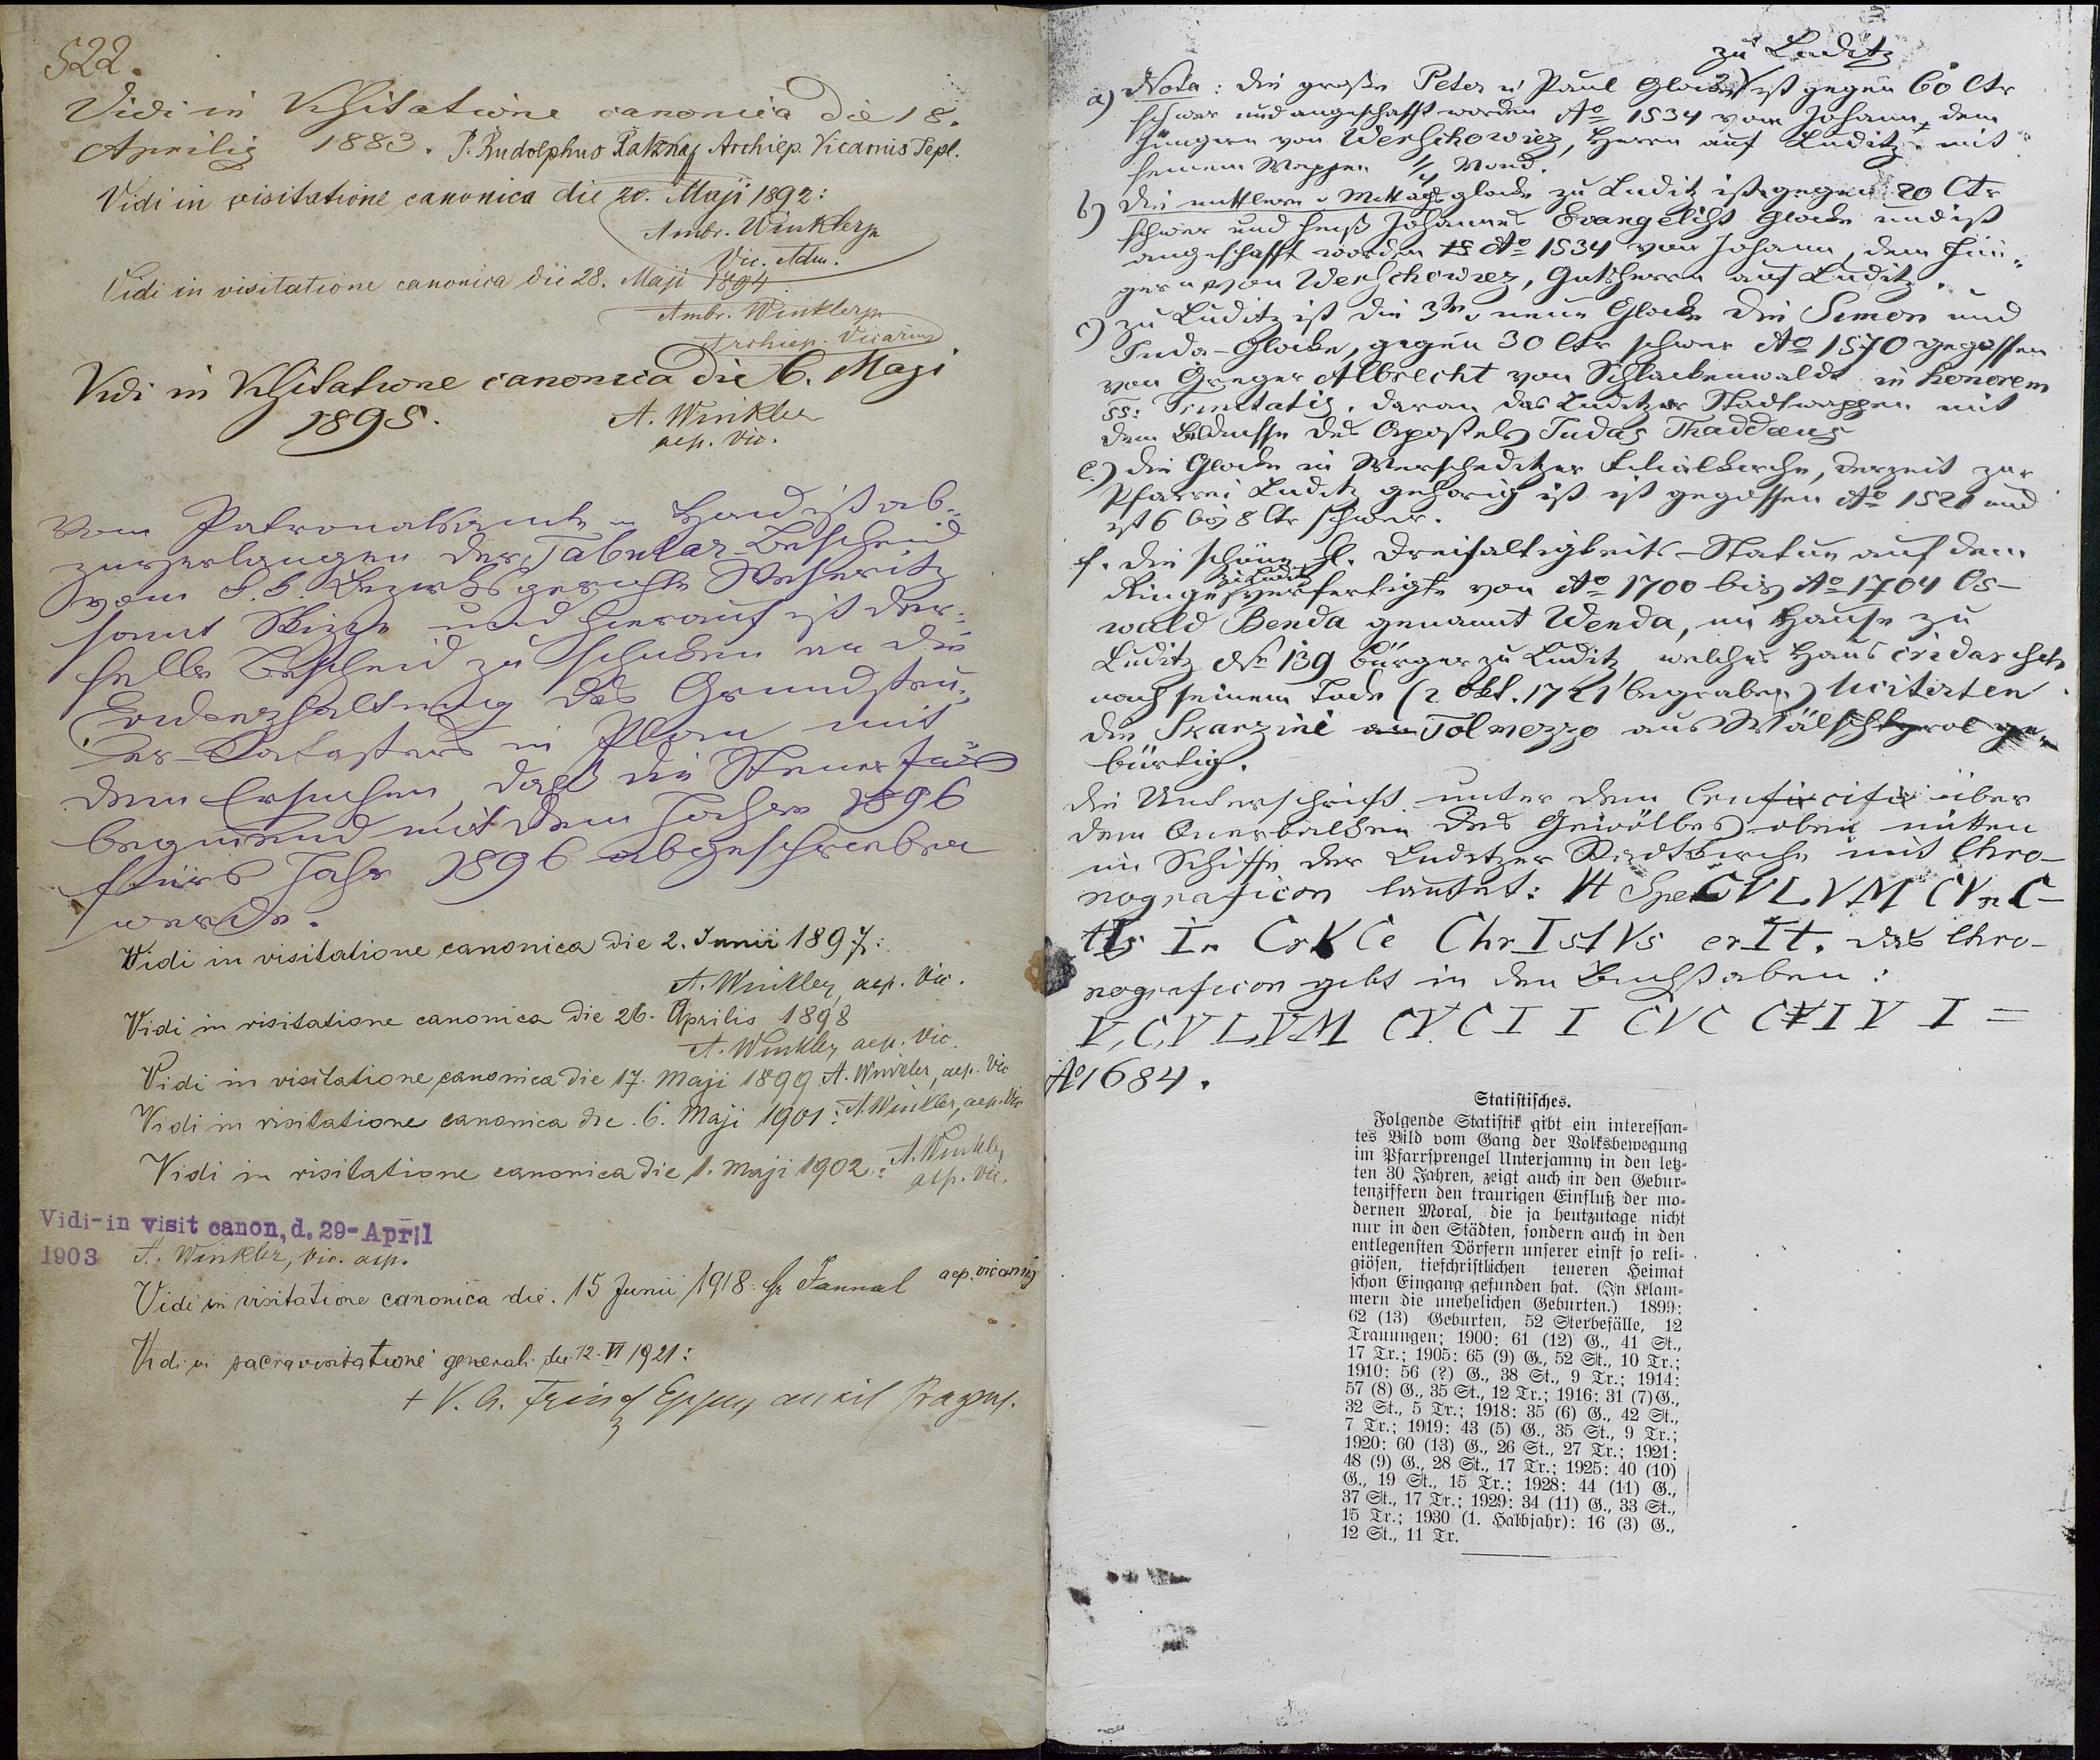 522.
Vidi in Visitatione canonica die 18.
Aprilis 1883. P. Rudolphus Archiep. Vicarius Tepl.
Vidi in visitatione canonica die 20. Maji 1892:
Ambr. Winkler
Vic. Adm.
Vidi in visitatione canonica die 28. Maji 1894.
Ambr. Winkler
Archiep. Vicarius
Vidi in Visitatione canonica die 6. Maji
1895. A. Winkler
aep. Vic.
Vom Patronatsamte ist ab-
zuverlangen der Tabular-Bescheid
vom k. k. Bezirksgerichte Weseritz
samt Skizze und hierauf ist der-
selbe Bescheid zu schicken an die
Evidenzhaltung des Grundsteu-
er-Katasters in Plan mit
dem Ersuchen, daß die Steuer für
beginnend mit dem Jahre 1896
fürs Jahr 1896 abgeschrieben
werde.
Vidi in visitatione canonica die 2. Junii 1897:
A. Winkler, aep. Vic.
Vidi in visitatione canonica die 26. Aprilis 1898
A. Winkler aep. Vic.
Vidi in visitatione canonica die 17. Maji 1899 A. Winkler, aep. Vic
Vidi in visitatione canonica die 6. Maji 1901: A. Winkler, aep. Vic
Vidi in visitatione canonica die 1. Maji 1902: A. Winkler
aep. Vic.
Vidi-in visit canon, d. 29-April
1903 A. Winkler, Vic. aep.
Vidi in visitatione canonica die. 15 Junii 1918. aep. vicarius
Vidi in sacra visitatione generali die 12. VI 1921:
zu Luditz
a) Nota: die große Peter u Paul Glocke ist gegen 60 Ctr
schwer und angeschafft worden Aº 1534 vom Johann, dem
Jüngern von Werschowiez, Herrn auf Luditz mit
seinem Wappen 1/4 Mond.
b) die mittlere o Mittags glocke zu Luditz ist gegen 20 Ctr
schwer und heiß Johannes Evangelist Glocke und ist
angeschafft worden 15 Aº 1534 von Johann, dem Jün-
gern von Werschowiez, Gutsherrn auf Luditz.
c) zu Luditz ist die 3te o neue Glocke die Simon und
Juda-Glocke, gegen 30 Ctr schwer Aº 1570 gegossen
von Greger Albrecht von Schlackenwalde in honorem
SS: Trinitatis, daran das Luditzer Stadtwappen mit
dem Bildnisse des Apostels Judas Thaddaeus
e.) die Glocke in Werscheditzer Filialkirche, derzeit zur
Pfarrei Luditz gehörig ist ist gegossen Aº 1521 und
ist 6 bis 8 Ctr schwer.
f. die schöne Hl. Dreifaltigkeits-Statue auf dem
zu Luditz
Ringe verfertigte von Aº 1700 bis Aº 1704 Os-
wald Benda genannt Wenda, im Hause zu
Luditz Nr 139 Bürger zu Luditz welches Haus cridarisch
nach seinem Tode (2 Okt. 1721 begraben) licitirten
die Skarzini Tolmezzo aus Wälschtyrol ge-
bürtig.
die Unterschrift unter dem Crucifix über
dem Querbalken des Gewölbes oben mitten
im Schiffe der Luditzer Stadtkirche mit Chro-
nograficon lautet: Vt SpeCVLVM CVnC-
tIs In CrVCe ChrIstVs erIt. das Chro-
nograficon gibt in den Buchstaben:
V, C, V L, VM CV C I I CVC C I V I =
Aº 1684.
Statistisches.
Folgende Statistik gibt ein interessan-
tes Bild vom Gang der Volksbewegung
im Pfarrsprengel Unterjamny in den letz-
ten 30 Jahren, zeigt auch in den Gebur-
tenziffern den traurigen Einfluß der mo-
dernen Moral, die ja heutzutage nicht
nur in den Städten, sondern auch in den
entlegensten Dörfern unserer einst so reli-
giösen, tiefchristlichen teueren Heimat
schon Eingang gefunden hat. (In Klam-
mern die unehelichen Geburten.) 1899:
62 (13) Geburten, 52 Sterbefälle, 12
Trauungen; 1900: 61 (12) G., 41 St.,
17 Tr.; 1905: 65 (9) G., 52 St., 10 Tr.;
1910: 56 (?) G., 38 St., 9 Tr.; 1914:
57 (8) G., 35 St., 12 Tr.; 1916: 31 (7) G.,
32 St., 5 Tr.; 1918: 35 (6) G., 42 St.,
7 Tr.; 1919: 43 (5) G., 35 St., 9 Tr.;
1920: 60 (13) G., 26 St., 27 Tr.; 1921:
48 (9) G., 28 St., 17 Tr.; 1925: 40 (10)
G., 19 St., 15 Tr.; 1928: 44 (11) G.,
37 St., 17 Tr.; 1929: 34 (11) G., 33 St.,
15 Tr.; 1930 (1. Halbjahr): 16 (3) G.,
12 St., 11 Tr.